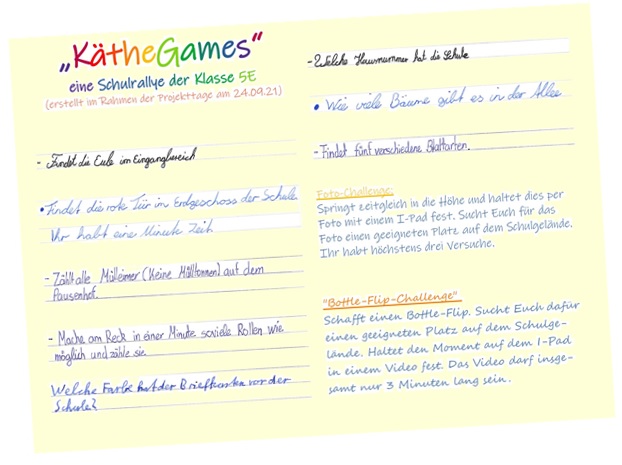 „KätheGames“
eine Schulrallye der Klasse 5E
(erstellt im Rahmen der Projekttage am 24.09.21)
- Findet die Eule im Eingangbereich
• Findet die rote Tür im Erdgeschoss der Schule.
Ihr habt eine Minute Zeit
- Zählt alle Mülleimer (Keine Mülltonnen) auf dem
Pausenhof.
- Mache am Reck in einer Minute soviele Rollen wie
möglich und zähle sie.
Welche Farbe hat der Briefkasten vor der
Schule?
- Welche Hausnummer hat die Schule
• Wie viele Bäume gibt es in der Allee
- Findet fünf verschiedene Blattarten.
Foto-Challenge:
Springt zeitgleich in die Höhe und haltet dies per
Foto mit einem I-Pad fest. Sucht Euch für das
Foto einen geeigneten Platz auf dem Schulgelände.
Ihr habt höchstens drei Versuche.
"Bottle-Flip-Challenge"
Schafft einen Bottle-Flip. Sucht Euch dafür
einen geeigneten Platz auf dem Schulge-
lände. Haltet den Moment auf dem I-Pad
in einem Video fest. Das Video darf insge-
samt nur 3 Minuten lang sein.